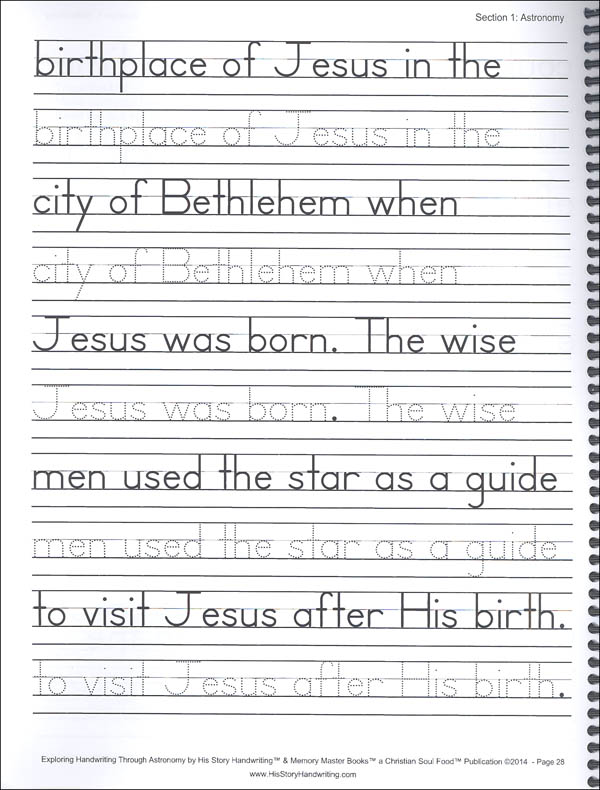 Section 1: Astronomy
birthplace of Jesus in the
birthplace of Jesus in the
city of Bethlehem when
city of Bethlehem when
Jesus was born. The wise
Jesus was born. The wise
men used the star as a guide
men used the star as a guide
to visit Jesus after His birth.
to visit Jesus after His birth.
Exploring Handwriting Through Astronomy by His Story Handwriting™ & Memory Master Books™ a Christian Soul Food™ Publication ©2014 - Page 28
www.HisStoryHandwriting.com